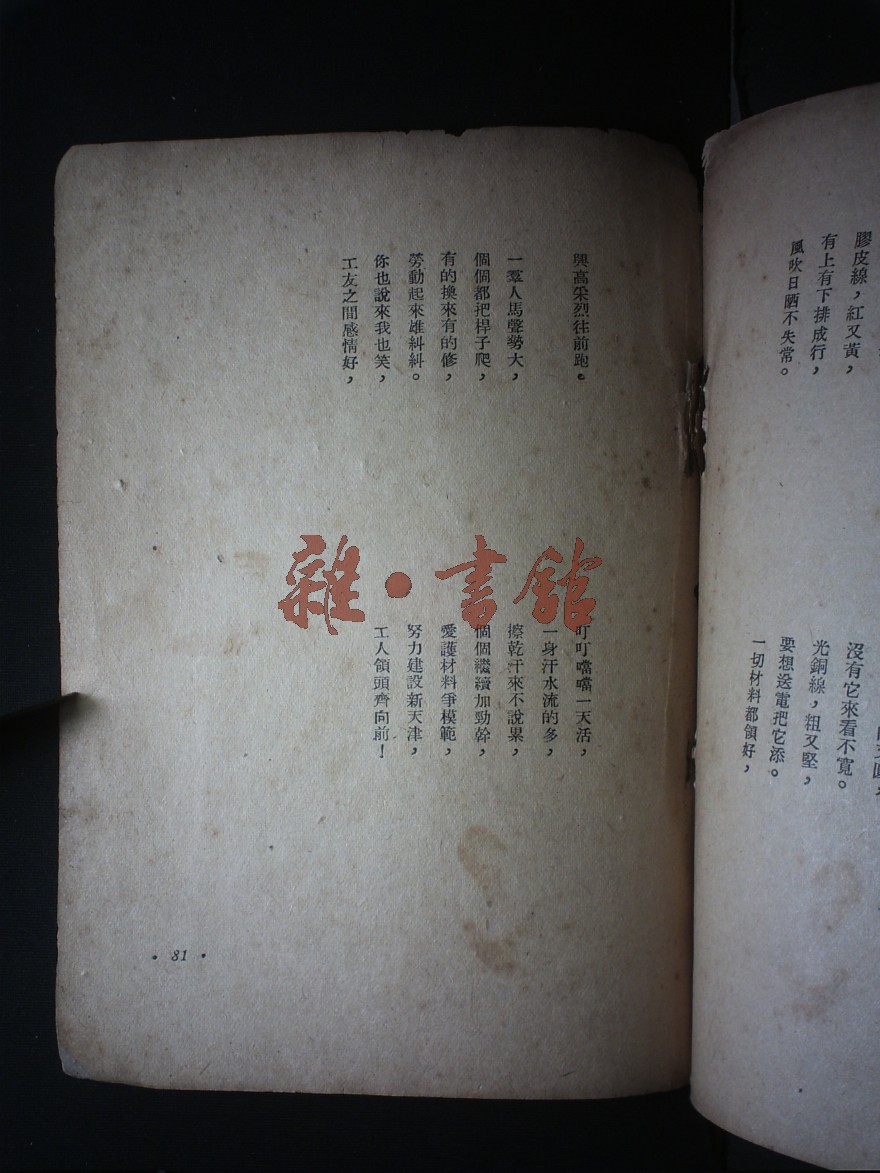 膠皮線，紅又黃，
有上有下排成行，
風吹日晒不失常。
沒有它來看不寬。
光銅線，粗又堅，
要想送電把它添。
一切材料都領好，
興高采烈往前跑。
一羣人馬聲勢大，
個個都把桿子爬，
有的換來有的修，
勞動起來雄糾糾。
你也說來我也笑，
工友之間感情好，
叮叮噹噹一天活，
一身汗水流的多，
擦乾汗來不說累，
個個繼續加勁幹，
愛護材料爭模範，
努力建設新天津，
工人領頭齊向前！
• 81 •
雜•書館